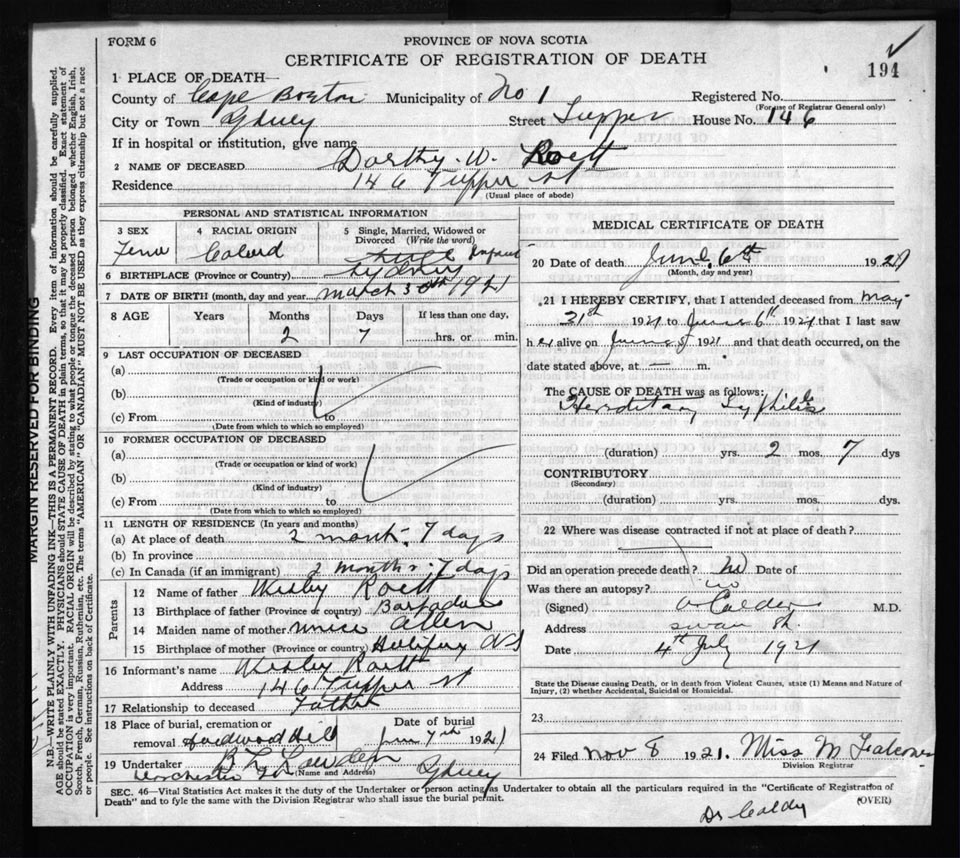 FORM 6
PROVINCE OF NOVA SCOTIA
CERTIFICATE OF REGISTRATION OF DEATH
194
1 PLACE OF DEATH—
County of Cape Breton Municipality of No 1 Registered No.
(For use of Registrar General only)
City or Town Sydney Street Tupper House No. 146
If in hospital or institution, give name
2 NAME OF DECEASED Dorthy. W. Roett
Residence 146 Tupper st
(Usual place of abode)
PERSONAL AND STATISTICAL INFORMATION
3 SEX 4 RACIAL ORIGIN 5 Single, Married, Widowed or
Divorced (Write the word)
Colord Infant
6 BIRTHPLACE (Province or Country) Sydney
7 DATE OF BIRTH (month, day and year) March 30th 1921
8 AGE Years Months Days If less than one day,
2 7 hrs. or min.
9 LAST OCCUPATION OF DECEASED
(a)
(Trade or occupation or kind or work)
(b)
(Kind of industry)
(c) From to
(Date from which to which so employed)
10 FORMER OCCUPATION OF DECEASED
(a)
(Trade or occupation or kind of work)
(b)
(Kind of industry)
(c) From to
(Date from which to which so employed)
11 LENGTH OF RESIDENCE (In years and months)
(a) At place of death 2 month. 7 days
(b) In province
(c) In Canada (if an immigrant) 2 months. 7 days
Parents
12 Name of father Wesley Roett
13 Birthplace of father (Province or country) Barbados
14 Maiden name of mother Allen
15 Birthplace of mother (Province or country) Halifax NS
16 Informant's name Wesley Roett
Address 146 Tupper st
17 Relationship to deceased Father
18 Place of burial, cremation or Date of burial
removal Hardwood Hill June 7th 1921
19 Undertaker
(Name and Address)
Dorchester St Sydney
MEDICAL CERTIFICATE OF DEATH
20 Date of death June 6th 1921
(Month, day and year)
21 I HEREBY CERTIFY, that I attended deceased from May
21st 1921 to June 6th 1921 that I last saw
her alive on June 5 1921 and that death occurred, on the
date stated above, at — m.
The CAUSE OF DEATH was as follows:
Hereditary Syphilis
(duration) yrs. 2 mos. 7 dys
CONTRIBUTORY
(Secondary)
(duration) yrs. mos. dys.
22 Where was disease contracted if not at place of death?
Did an operation precede death? No Date of
Was there an autopsy? no
(Signed) Calder M.D.
Address
Date 4th July 1921
State the Disease causing Death, or in death from Violent Causes, state (1) Means and Nature of
Injury, (2) whether Accidental, Suicidal or Homicidal.
23
24 Filed Nov 8 1921. Miss M
Division Registrar
SEC. 46—Vital Statistics Act makes it the duty of the Undertaker or person acting as Undertaker to obtain all the particulars required in the "Certificate of Registration of
Death" and to fyle the same with the Division Registrar who shall issue the burial permit.
(OVER)
Dr
MARGIN RESERVED FOR BINDING
N.B.—WRITE PLAINLY WITH UNFADING INK—THIS IS A PERMANENT RECORD. Every item of information should be carefully supplied.
AGE should be stated EXACTLY. PHYSICIANS should STATE CAUSE OF DEATH in plain terms, so that it may be properly classified. Exact statement of
OCCUPATION is very important. RACIAL ORIGIN will be described by stating to what people or tongue the deceased person belonged whether English, Irish,
Scotch, French, German, Russian, Ruthenian, etc. The terms "AMERICAN" OR "CANADIAN" MUST NOT BE USED as they express citizenship but not a race
or people. See instructions on back of Certificate.